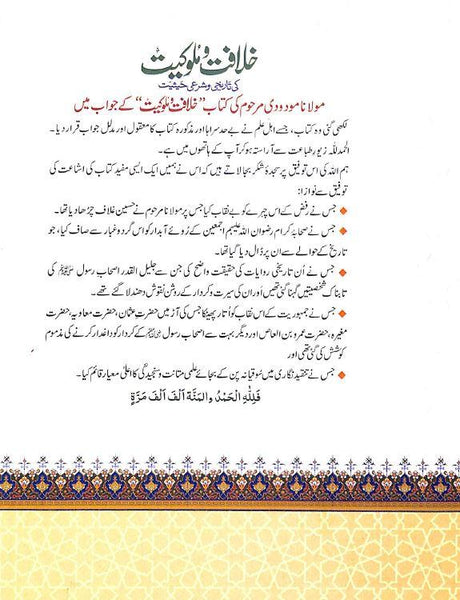 خلافت و ملوکیت
کی تاریخی و شرعی حیثیت
مولانا مودودی مرحوم کی کتاب "خلافت و ملوکیت" کے جواب میں
لکھی گئی وہ کتاب، جسے اہل علم نے بے حد سراہا اور مذکورہ کتاب کا معقول اور مدلل جواب قرار دیا۔
الحمدللہ زیور طباعت سے آراستہ ہو کر آپ کے ہاتھوں میں ہے۔
ہم اللہ کی اس توفیق پر سجدۂ شکر بجا لاتے ہیں کہ اس نے ہمیں ایک ایسی مفید کتاب کی اشاعت کی
توفیق سے نوازا:
جس نے رفض کے اس چہرے کو بے نقاب کیا جس پر مولانا مرحوم نے حسین غلاف چڑھا دیا تھا۔
جس نے صحابۂ کرام رضوان اللہ علیہم اجمعین کے رُوئے آبدار کو اس گرد و غبار سے صاف کیا، جو
تاریخ کے حوالے سے ان پر ڈال دیا گیا تھا۔
جس نے اُن تاریخی روایات کی حقیقت واضح کی جن سے جلیل القدر اصحاب رسول ﷺ کی
تابناک شخصیتیں گہنا گئی تھیں اور ان کی سیرت و کردار کے روشن نقوش دھندلا گئے تھے۔
جس نے جمہوریت کے اس نقاب کو اُتار پھینکا جس کی آڑ میں حضرت عثمان، حضرت معاویہ، حضرت
مغیرہ، حضرت عمرو بن العاص اور دیگر بہت سے اصحاب رسول ﷺ کے کردار کو داغدار کرنے کی مذموم
کوشش کی گئی تھی اور
جس نے تنقید نگاری میں سوقیانہ پن کے بجائے علمی متانت و سنجیدگی کا اعلیٰ معیار قائم کیا۔
فَلِلّٰهِ الْحَمْدُ والمنَّة اَلفَ اَلفَ مَرَّةٍ